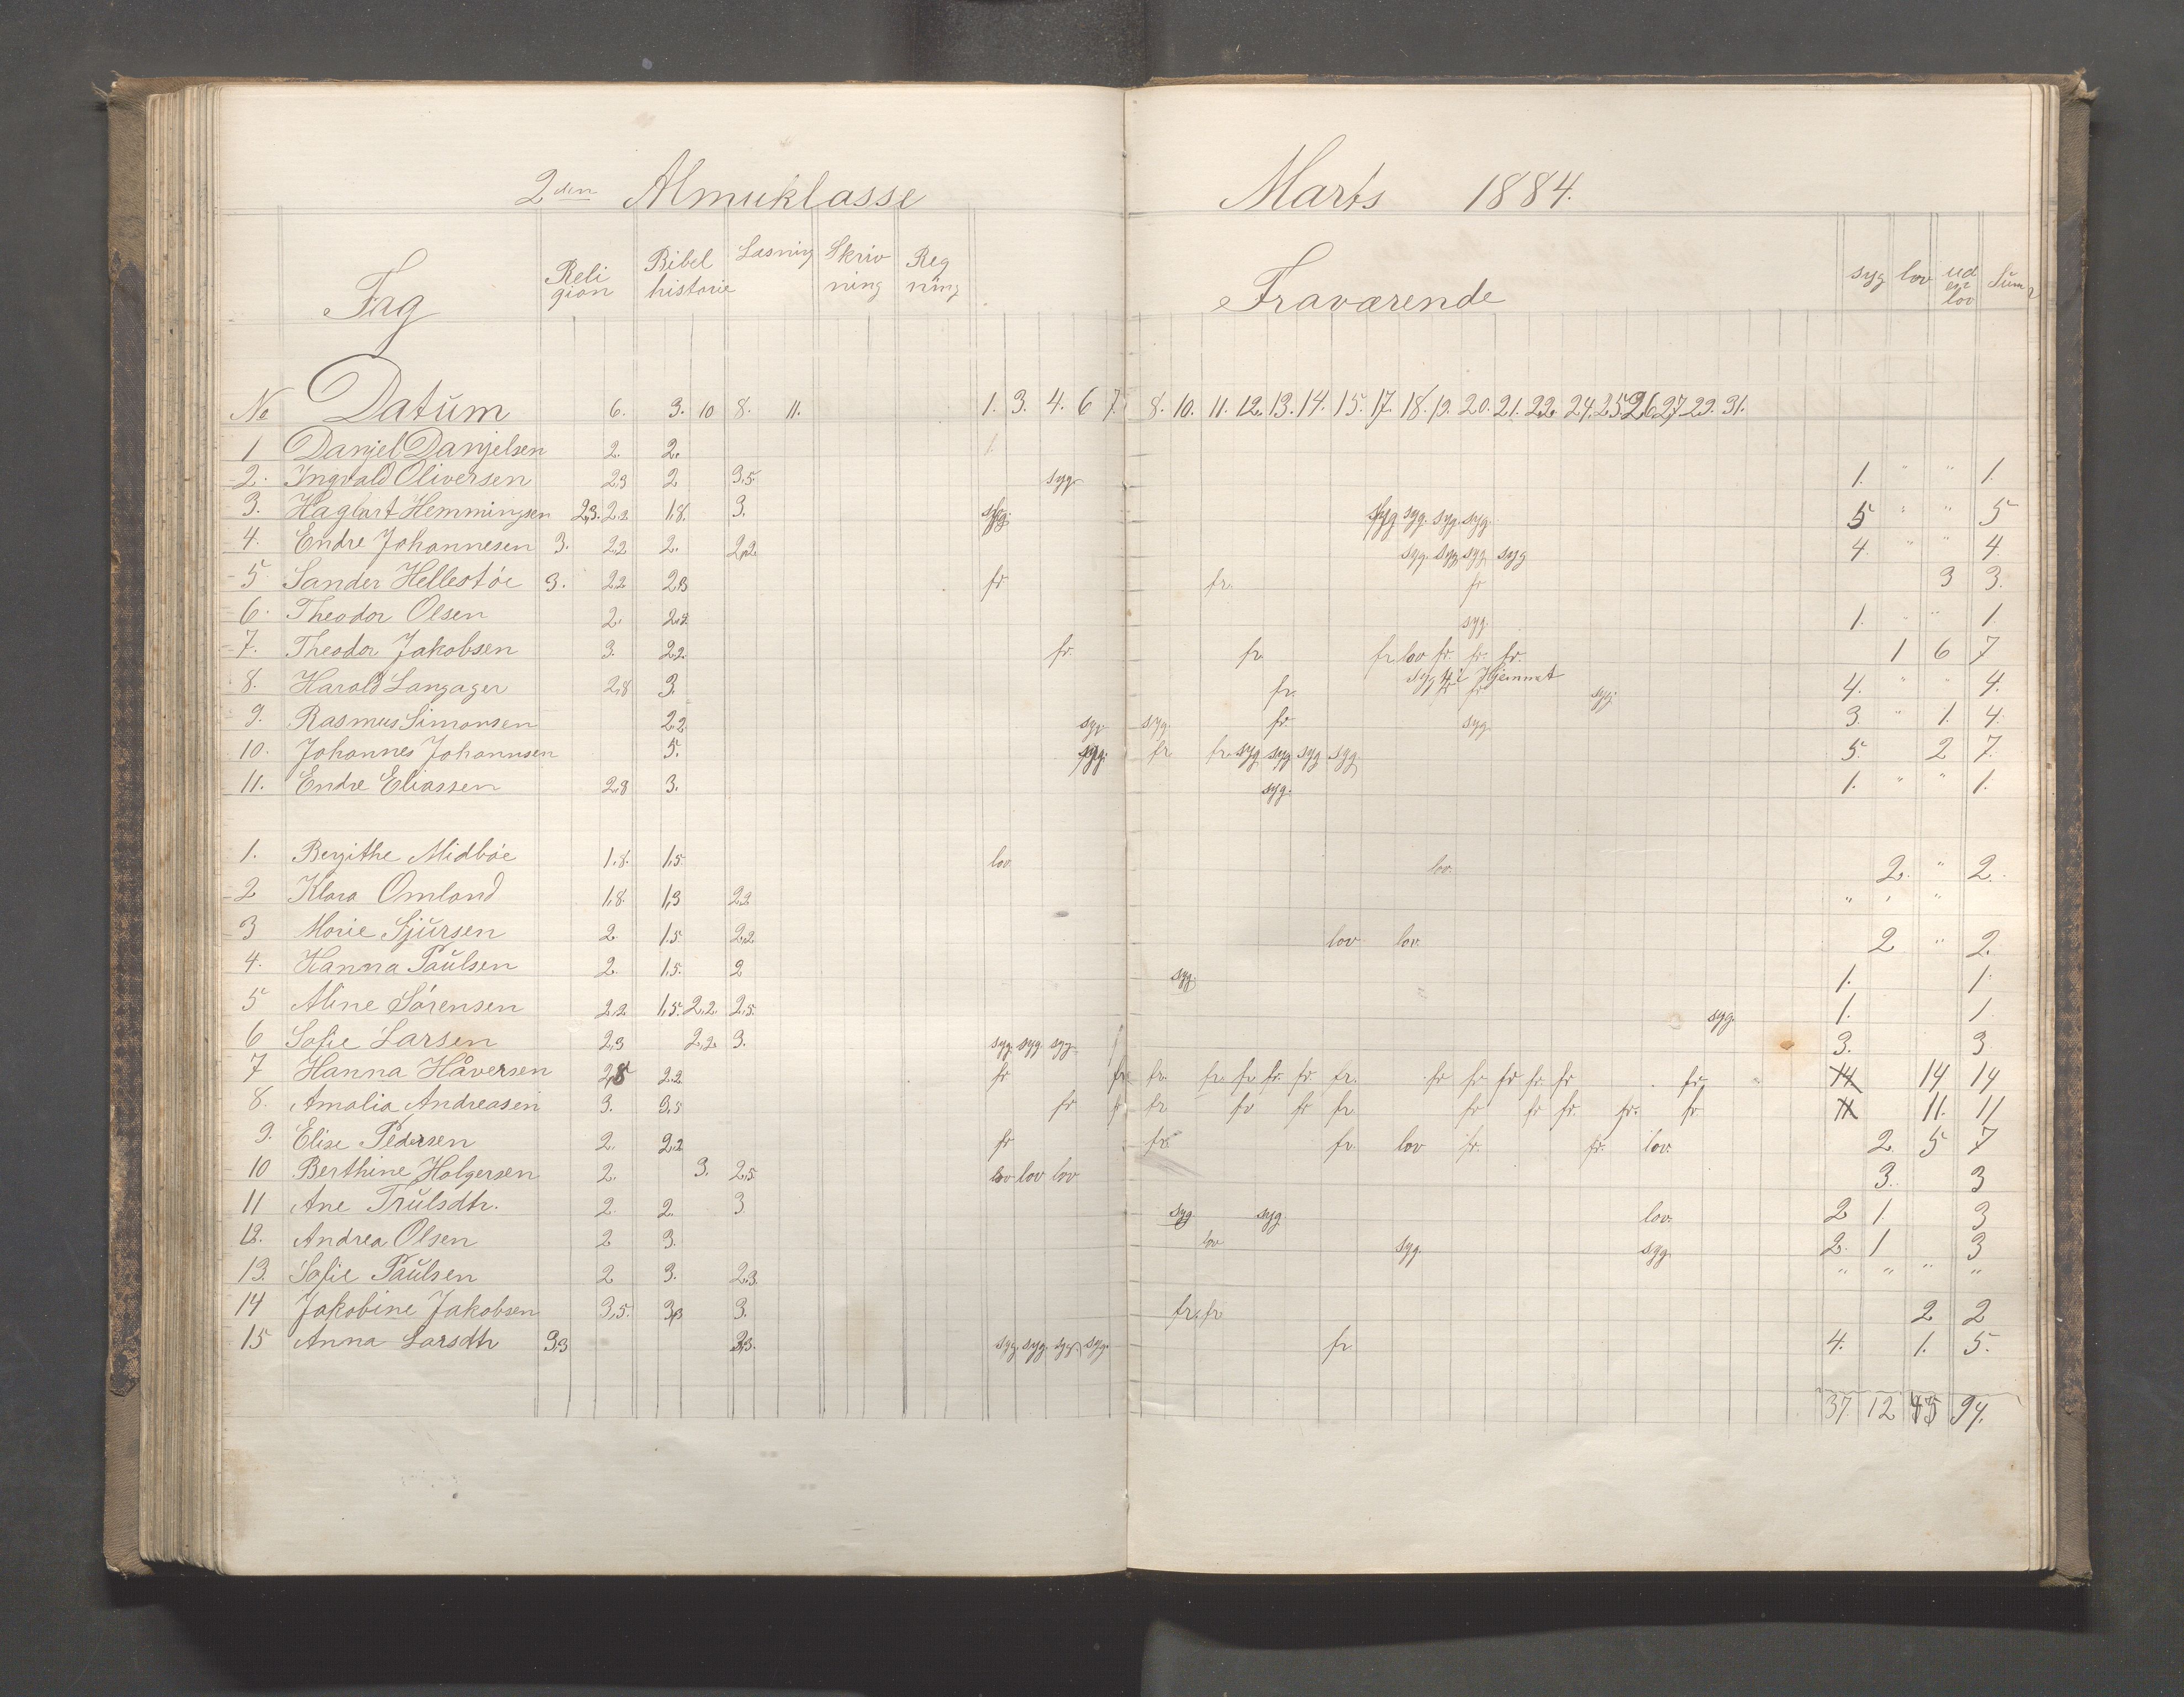 2den Almuklasse Marts 1884.
Fag Religion Bibelhistorie Læsning Skrivning Regning Fraværende syg lov uden lov Sum
No Datum 6. 3. 10 8. 11. 1. 3. 4. 6 7. 8. 10. 11. 12. 13. 14. 15. 17. 18. 19. 20. 21. 22. 24. 25. 26. 27 29. 31.
1 Danjel Danjelsen 2. 2.
2. Ingvald Oliversen 2,3 2 3,5. syg 1. " " 1.
3. Hagbart Hemmingsen 2,3. 2,2 1,8. 3. syg. syg syg. syg. syg. 5 " " 5
4. Endre Johannesen 3. 2,2 2. 2,2 syg. syg. syg. syg 4 " " 4.
5 Sander Hellestøe 3. 2,2 2,3 fr fr. fr 3 3.
6. Theodor Olsen 2. 2,2 syg. 1. " " 1.
7. Theodor Jakobsen 3. 2,2. fr. fr. fr. lov fr. fr. fr. 1 6 7
8. Harald Langager 2,8 3. fr. syg i Hjemmet fr fr syg. 4. " " 4.
9. Rasmus Simonsen 2,2 syg. syg. fr. syg. 3. " 1. 4.
10. Johannes Johannsen 5. syg. fr fr. syg syg syg syg. 5. 2 7.
11. Endre Eliassen 2,8 3. syg. 1. " " 1.
1. Bergithe Midbøe 1,8. 1,5. lov. lov. 2. " 2.
2 Klara Omland 1,8. 1,3 2,2 " " "
3 Marie Sjursen 2. 1,5. 2,2 lov lov. 2 " 2.
4. Hanna Paulsen 2. 1,5. 2 syg. 1. 1.
5 Aline Sørensen 2,2 1,5. 2,2. 2,5. syg. 1. 1
6 Sofie Larsen 2,3 2,2. 3. syg. syg. syg. 3. 3
7 Hanna Håversen 2,8 2,2 fr fr fr. fr. fr. fr. fr fr. fr fr fr fr fr fr. 14 14 14
8. Amalia Andreasen 3. 3,5 fr fr fr fr fr fr. fr fr fr. fr. fr 11 11. 11
9. Elise Pedersen 2. 2,2 fr fr. fr. lov fr. fr. lov. 2. 5 7
10 Berthine Holgersen 2. 3. 2,5 lov lov lov 3. 3
11 Ane Trulsdtr. 2. 2. 3 syg syg. lov. 2 1. 3
12. Andrea Olsen 2 3. lov syg. syg. 2. 1 3
13. Sofie Paulsen 2 3. 2,3. " " " "
14 Jakobine Jakobsen 3,5. 3,3 3. fr. fr. 2 2
15 Anna Larsdtr 3,3 3,3. syg. syg. syg. syg. fr 4. 1. 5.
37 12 45 94.